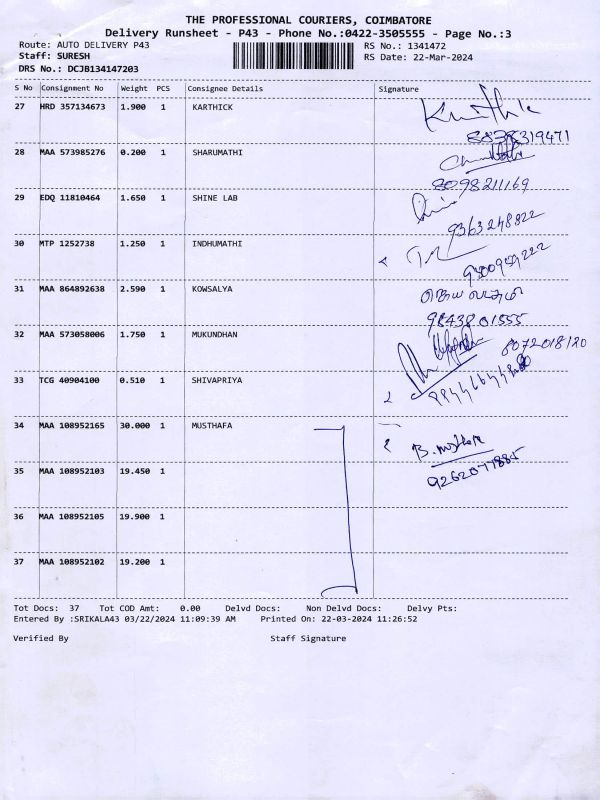 THE PROFESSIONAL COURIERS, COIMBATORE
Delivery Runsheet - P43 - Phone No.:0422-3505555 - Page No.:3
Route: AUTO DELIVERY P43 RS No.: 1341472
Staff: SURESH RS Date: 22-Mar-2024
DRS No.: DCJB134147203
S No Consignment No Weight PCS Consignee Details Signature
27 HRD 357134673 1.900 1 KARTHICK
28 MAA 573985276 0.200 1 SHARUMATHI
8098211169
29 EDQ 11810464 1.650 1 SHINE LAB
9363248822
30 MTP 1252738 1.250 1 INDHUMATHI
31 MAA 864892638 2.590 1 KOWSALYA
9843801555
32 MAA 573058006 1.750 1 MUKUNDHAN
8072018120
33 TCG 40904100 0.510 1 SHIVAPRIYA
34 MAA 108952165 30.000 1 MUSTHAFA
B. Musthafa
35 MAA 108952103 19.450 1
36 MAA 108952105 19.900 1
37 MAA 108952102 19.200 1
Tot Docs: 37 Tot COD Amt: 0.00 Delvd Docs: Non Delvd Docs: Delvy Pts:
Entered By :SRIKALA43 03/22/2024 11:09:39 AM Printed On: 22-03-2024 11:26:52
Verified By Staff Signature